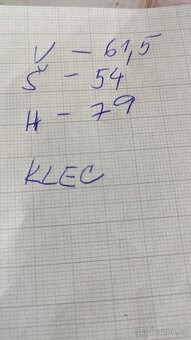 V - 61,5
Š - 54
H - 79
KLEC